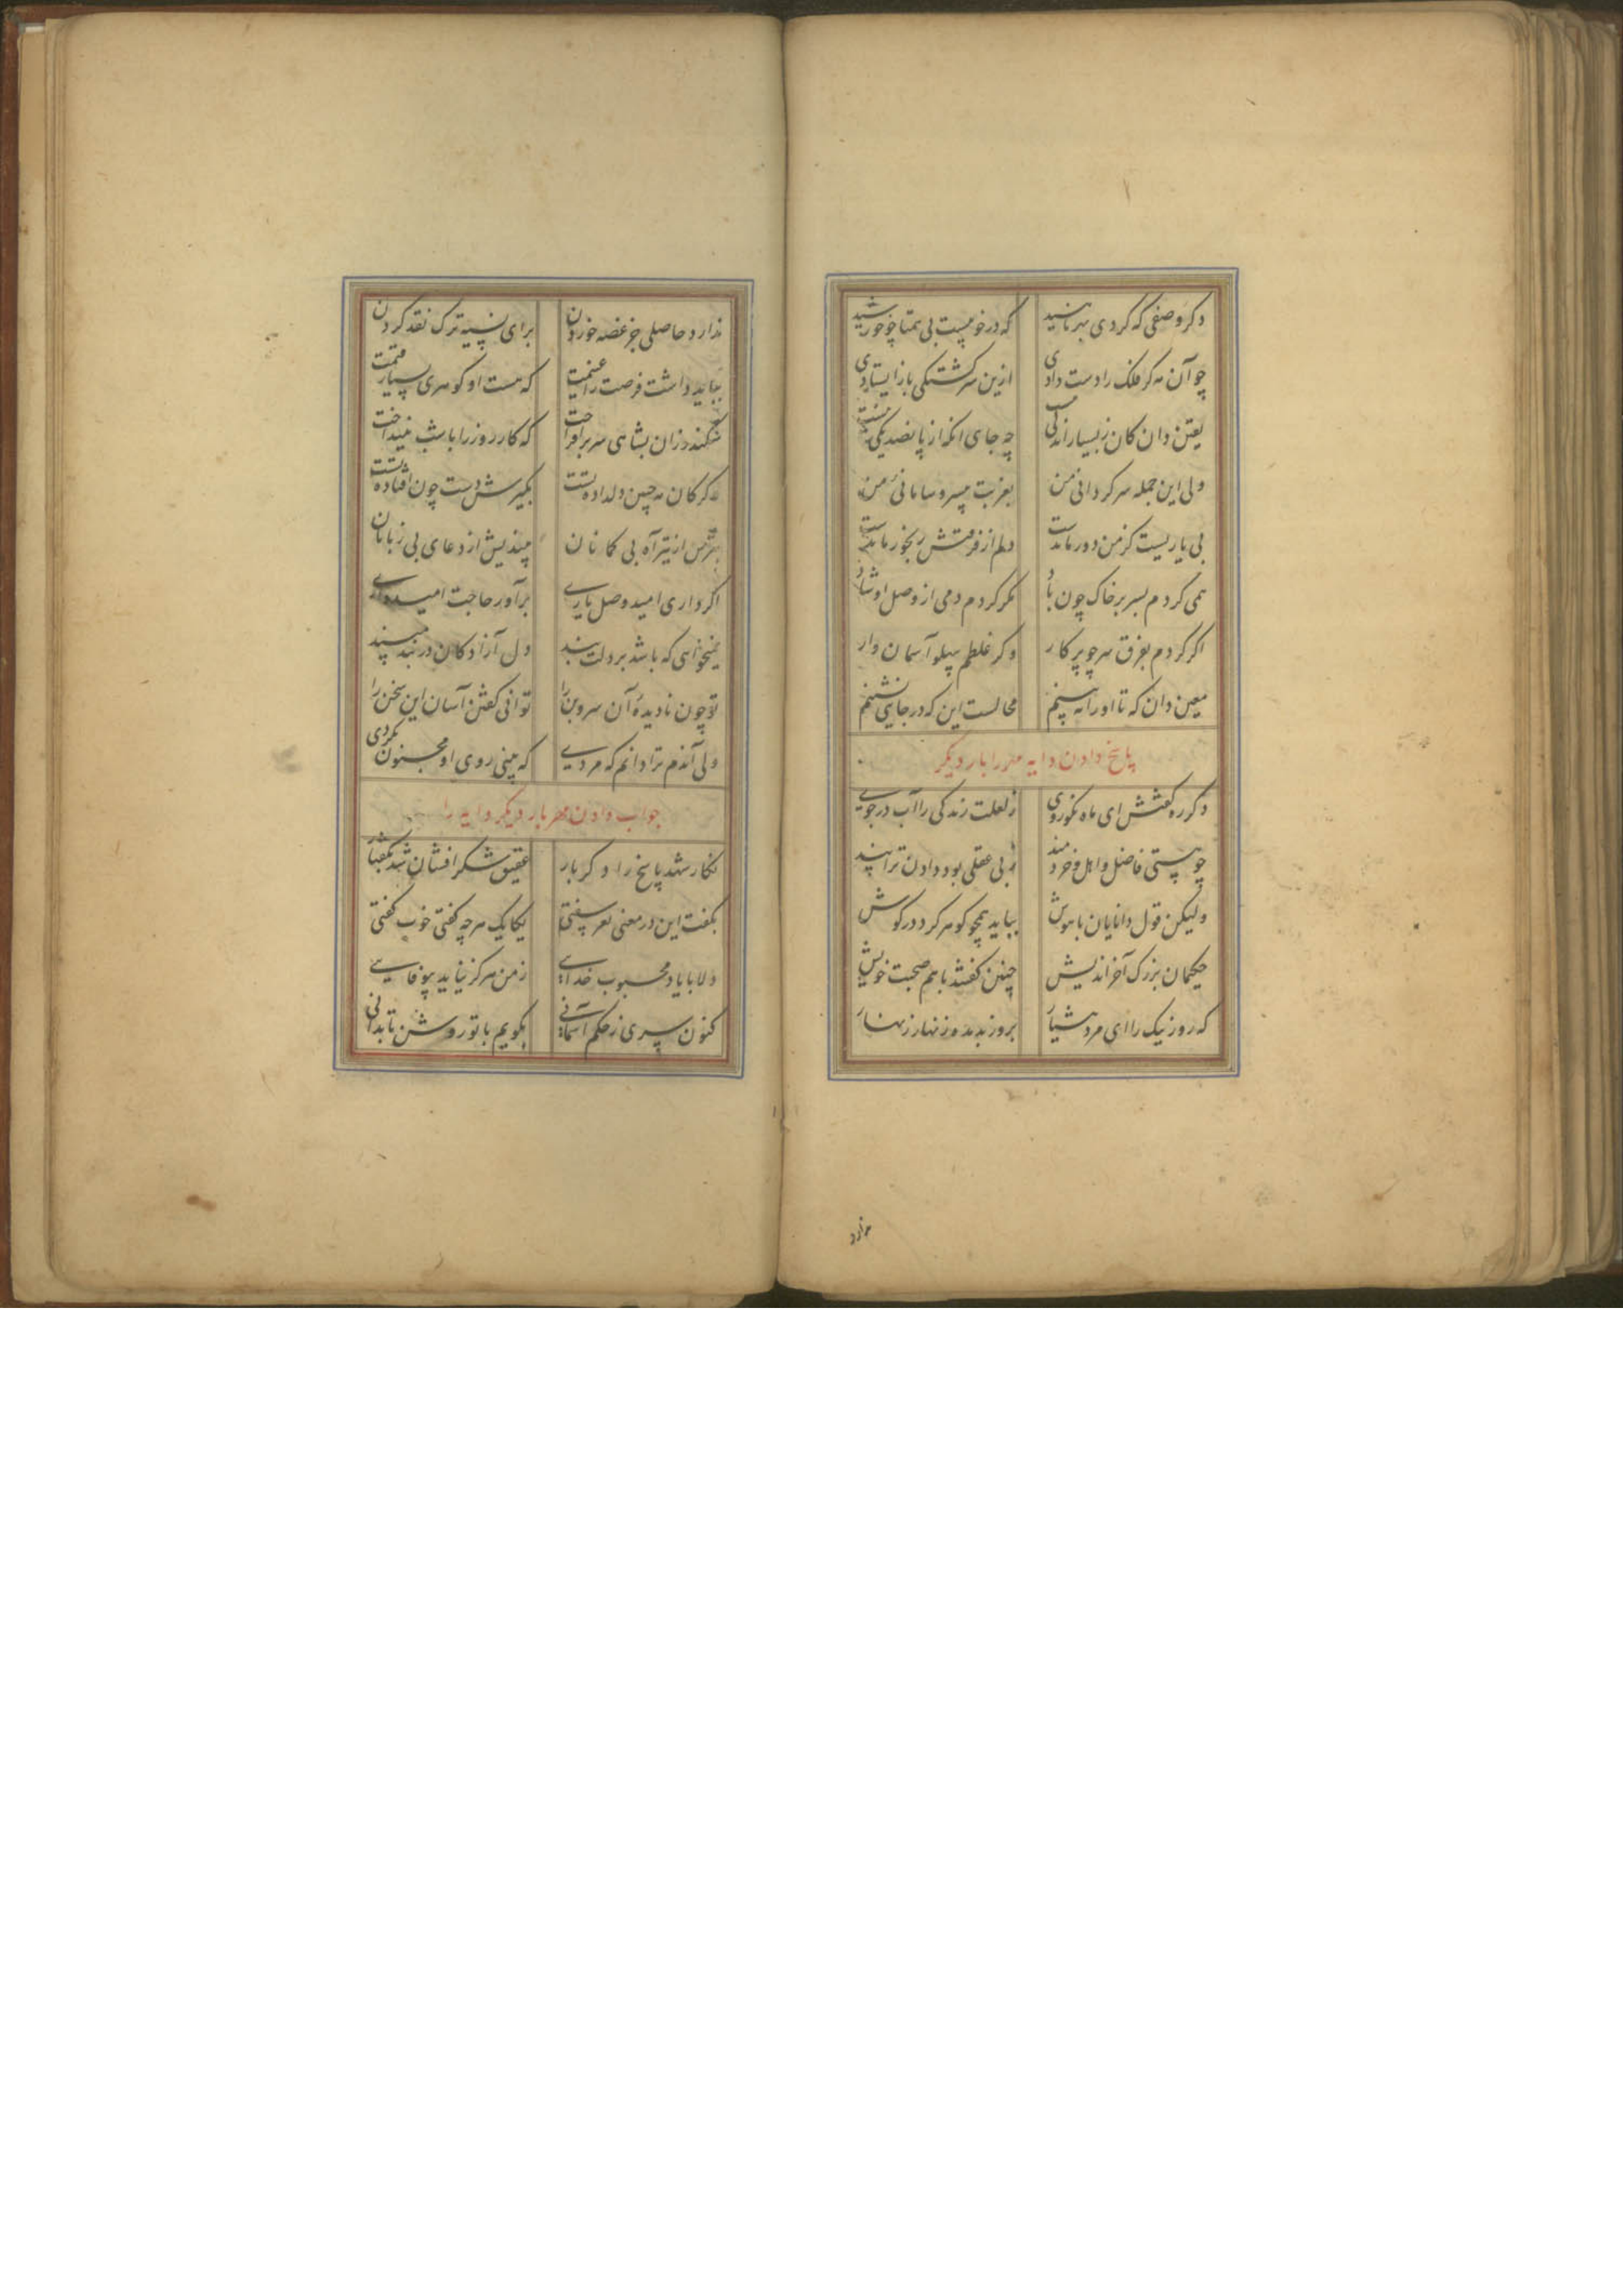 دکر وصفی که کردی بهر ناهید که در خوبیست بی همتا چو خورشید
چو آن مه کر فلک را دست دادی ازین سرکشتکی باز ایستادی
یقین دان کان ز بسیار اندکی چه جای انکه از پانصد یکی
ولی این جمله سرکردانی من بغربت بی سر و سامانی من
بی یاریست کز من دور ماندست دلم از فرقتش رنجور ماندست
همی کردم بسر بر خاک چون باد مکر کردم دمی از وصل او شاد
اکر کردم بفرق سر چو پرکار وکر غلطم بپهلو آسمان وار
معین دان که تا او را نه بینم محالست این که در جایی نشینم
پاسخ دادن دایه مهر را بار دیکر
دکر ره کفتش ای ماه نکوروی ز لعلت زندکی را آب در جوی
چو هستی فاضل و اهل و خردمند ز بی عقلی بود دادن ترا پند
ولیکن قول دانایان باهوش بباید همچو کوهر کرد در کوش
حکیمان بزرک آخر اندیش چنین کفتند با هم صحبت خویش
که روز نیک را ای مرد هشیار بروز بد مده زنهار زنهار
ندارد
ندارد حاصلی جز غصه خوردن برای نسیه ترک نقد کردن
بباید داشت فرصت را غنیمت که هست او کوهری بسیار قیمت
سکندر زان بشاهی سر برافراخت که کار روز را با شب نینداخت
کر کان مه چین دلداده تست بکیرش دست چون افتاده تست
بترس از تیر آه بی کمانان میندیش از دعای بی زبانان
اکر داری امید وصل یاری برآور حاجت امیدواری
نمیخواهی که باشد بر دلت بند دل آزادکان در بند مپسند
تو چون نادیدهٔ آن سروبن را توانی کفتن آسان این سخن را
ولی آندم ترا دانم که مردی که بینی روی او مجنون نکردی
جواب دادن مهر بار دیکر دایه را
نکار شد پاسخ را دکر بار عقیق شکر افشان شد بکفتار
بکفت این در معنی نغز سفتی یکایک هر چه کفتی خوب کفتی
ولا با یاد محبوب خدایی ز من هرکز نیاید بیوفایی
کنون سری ز حکم آسمانی بکویم با تو روشن تا بدانی